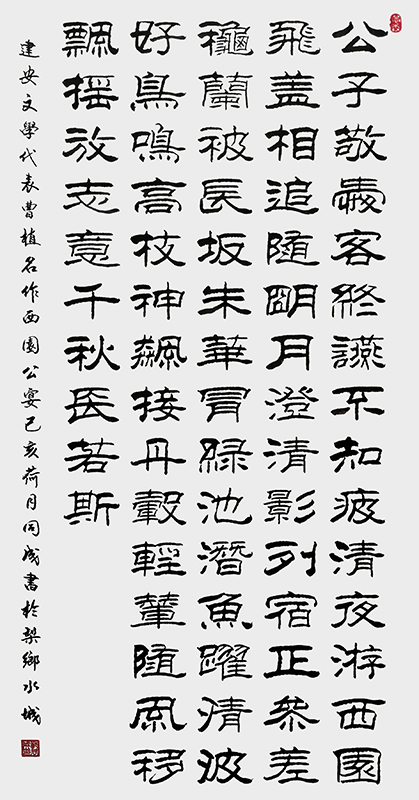 公子敬愛客終讌不知疲清夜游西園
飛盖相追随朙月澄清影列宿正叅差
龝蘭被長坂朱華冒緑池潛魚躍清波
好鳥鳴高枝神飆接丹轂輕輦随風移
飄摇放志意千秋長若斯
建安文學代表曹植名作西園公宴己亥荷月同成書於梨鄉水城